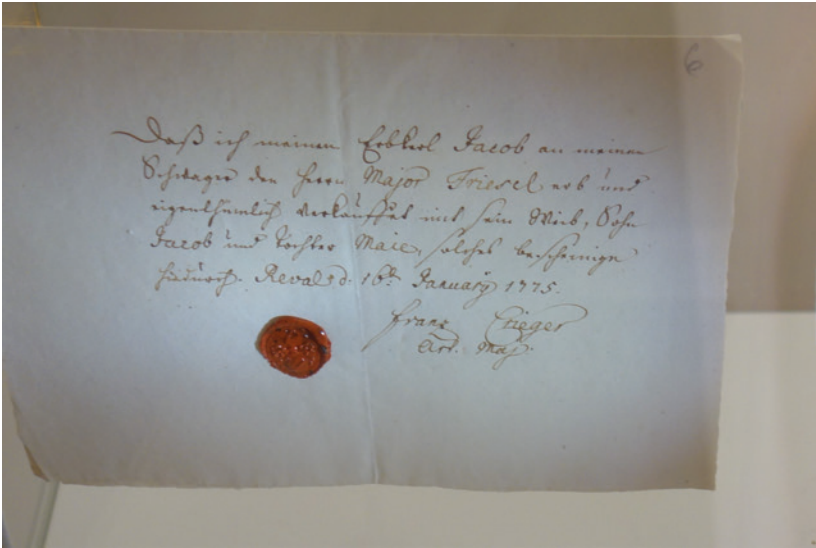 6
Daß ich meinen Erbkerl Jacob an meinen
Schwager den Herrn Major Friesel erb und
eigenthümlich verkauffet mit sein Weib, Sohn
Jacob und Tochter Maie, solches bescheinige
hiedurch. Reval d. 16t. January 1775.
Franz
Maj.